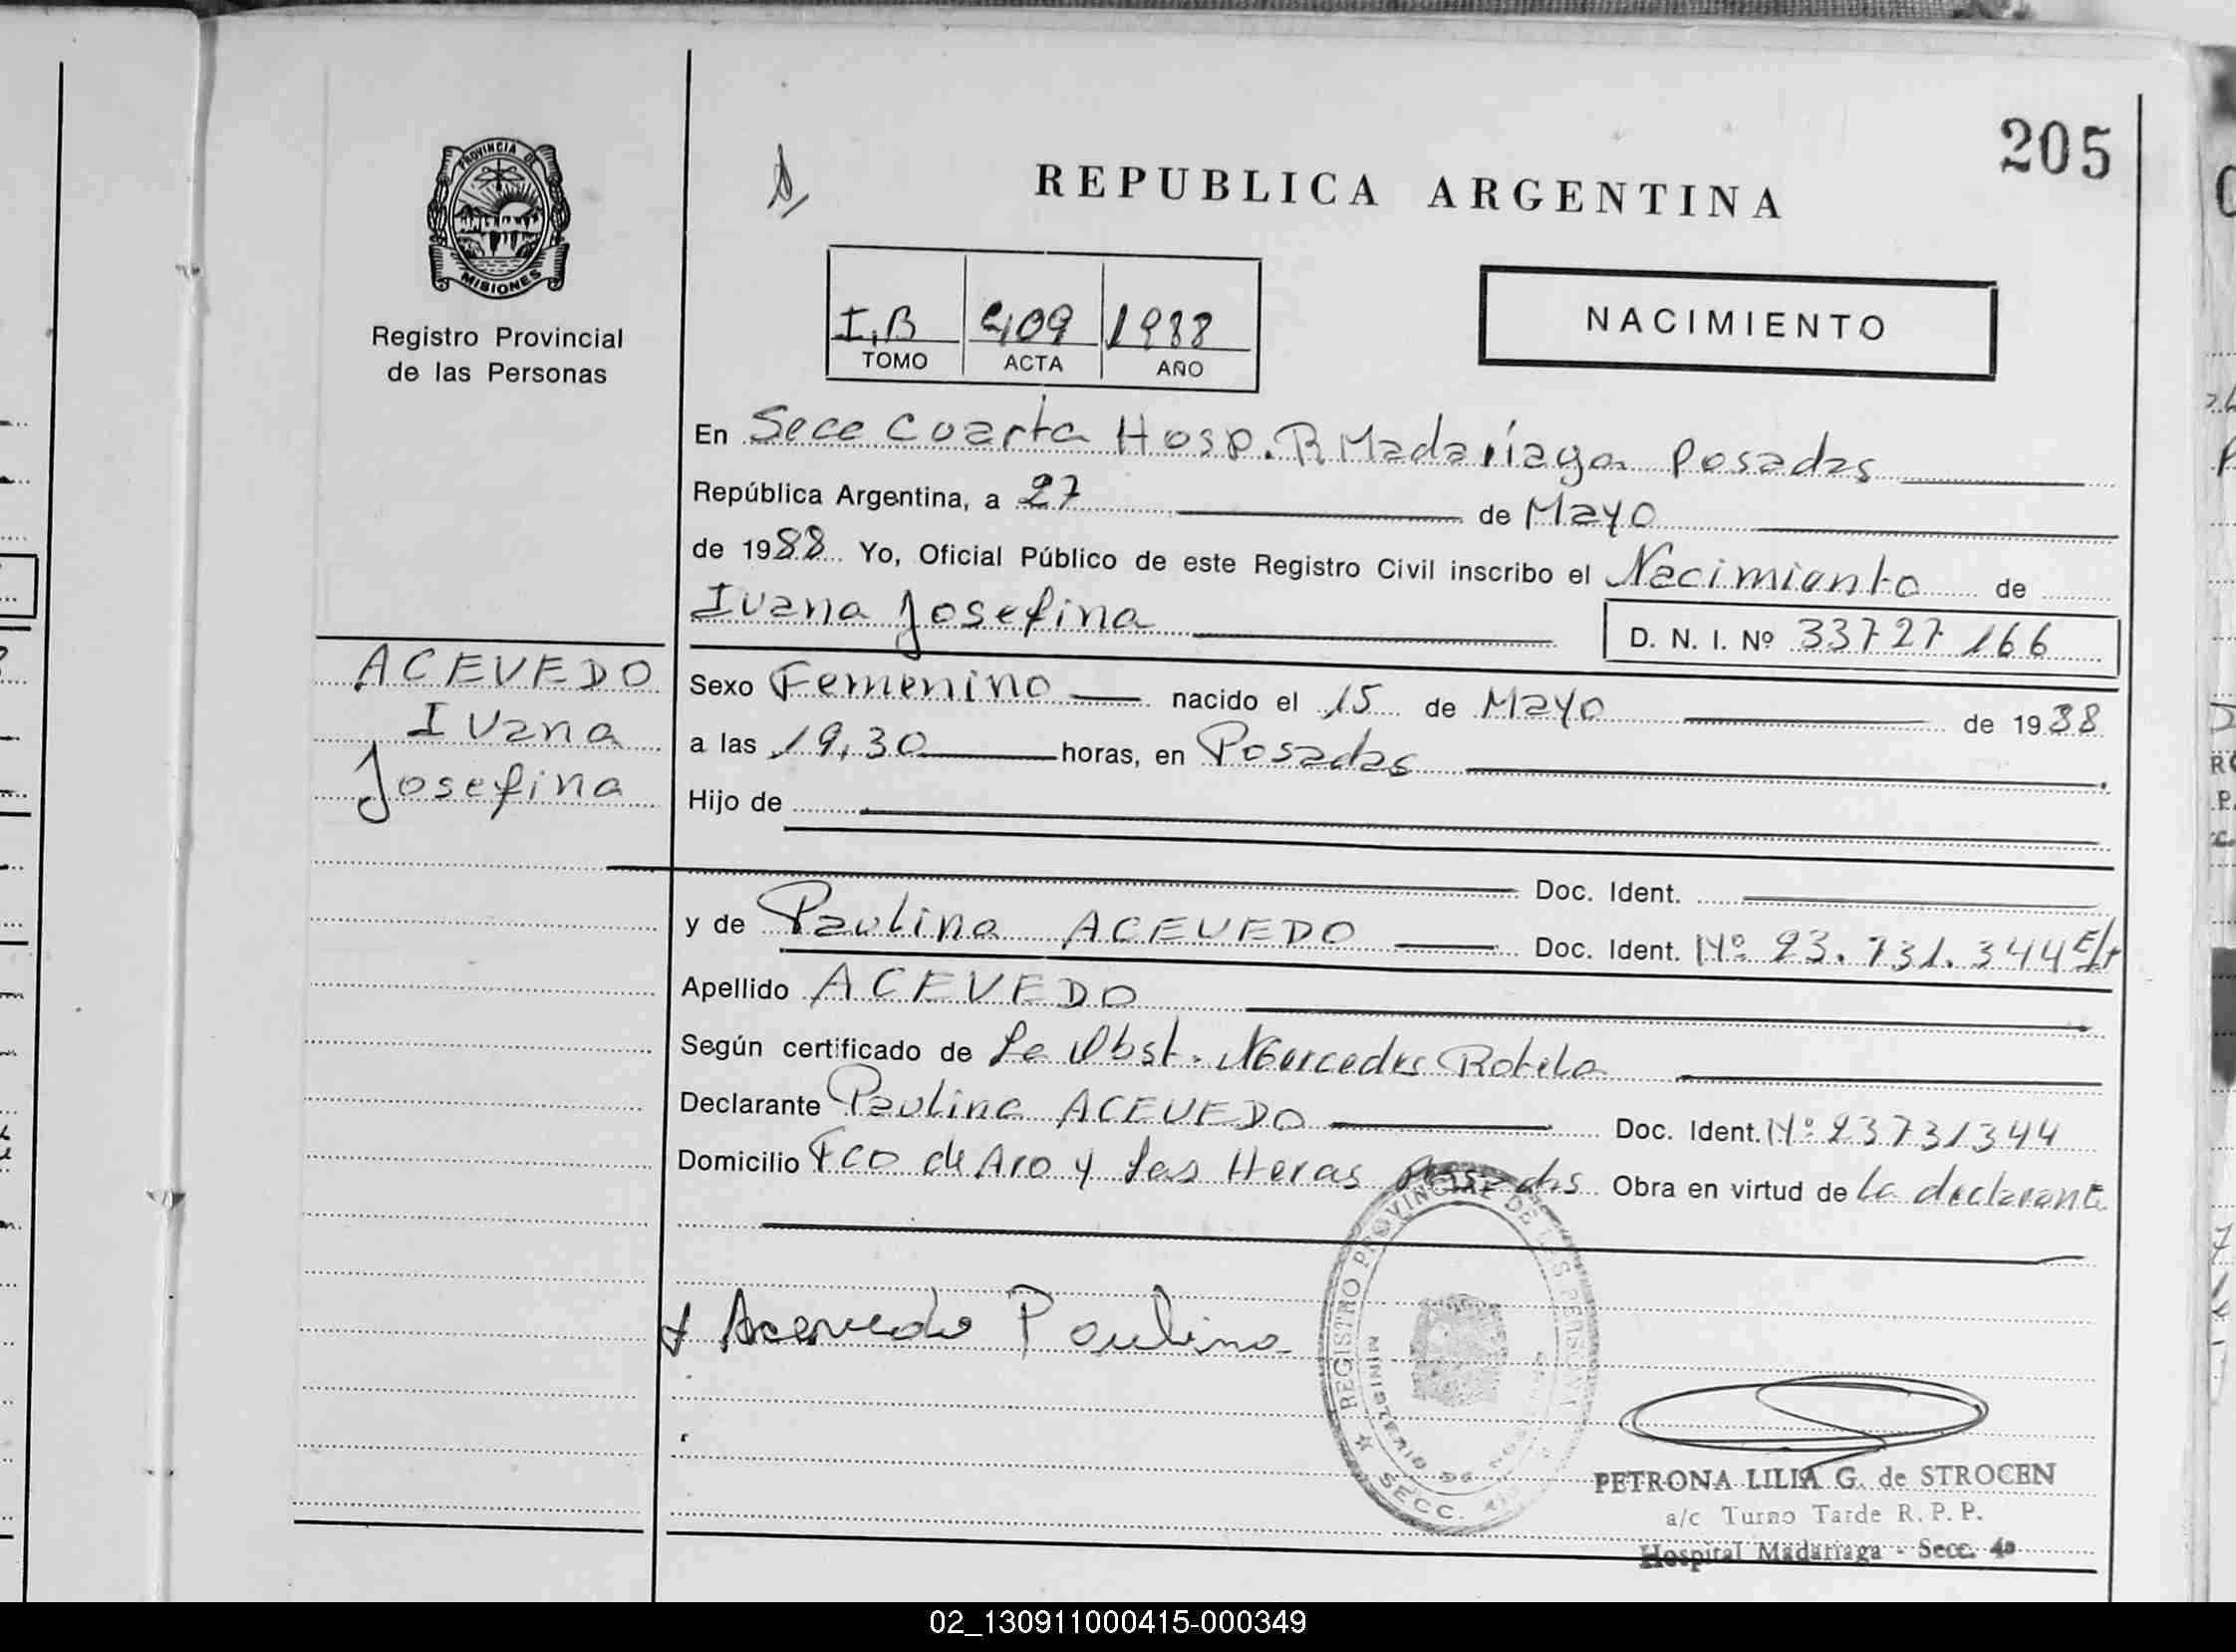 205
PROVINCIA DE
MISIONES
Registro Provincial
de las Personas
REPUBLICA ARGENTINA
I,B 409 1988
TOMO ACTA AÑO
NACIMIENTO
En Secc Cuarta Hosp. R Madariaga Posadas
República Argentina, a 27 de Mayo
de 1988 Yo, Oficial Público de este Registro Civil inscribo el Nacimiento de
Ivana Josefina
D. N. I. Nº 33727166
ACEVEDO
Ivana
Josefina
Sexo Femenino nacido el 15 de Mayo de 1988
a las 19,30 horas, en Posadas
Hijo de
Doc. Ident.
y de Paulina ACEVEDO Doc. Ident. Nº 23.731.344 E/t
Apellido ACEVEDO
Según certificado de La Obst. Mercedes Rotela
Declarante Paulina ACEVEDO Doc. Ident. Nº 23731344
Domicilio Fco de Aro y Las Heras Posadas Obra en virtud de la declarante
Acevedo Paulina
REGISTRO PROVINCIAL DE LAS PERSONAS
MINISTERIO DE
SECC.
PETRONA LILIA G. de STROCEN
a/c Turno Tarde R. P. P.
Hospital Madariaga - Secc. 4ª
02_130911000415-000349